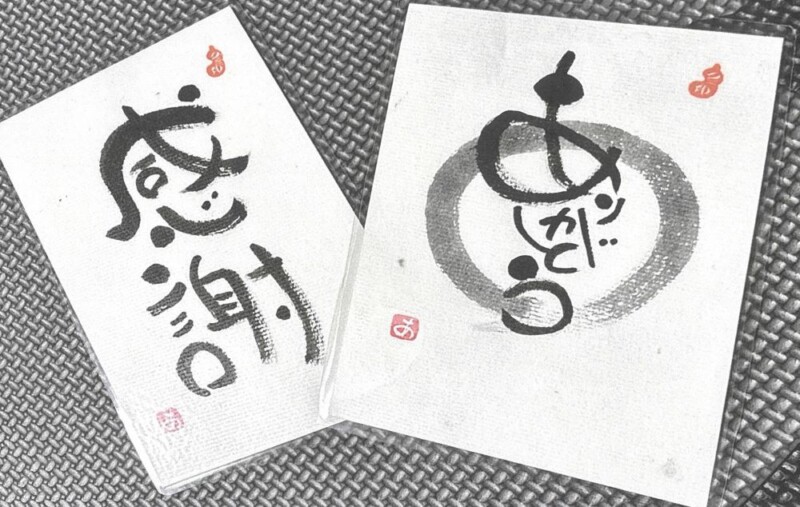 感謝
ありがとう